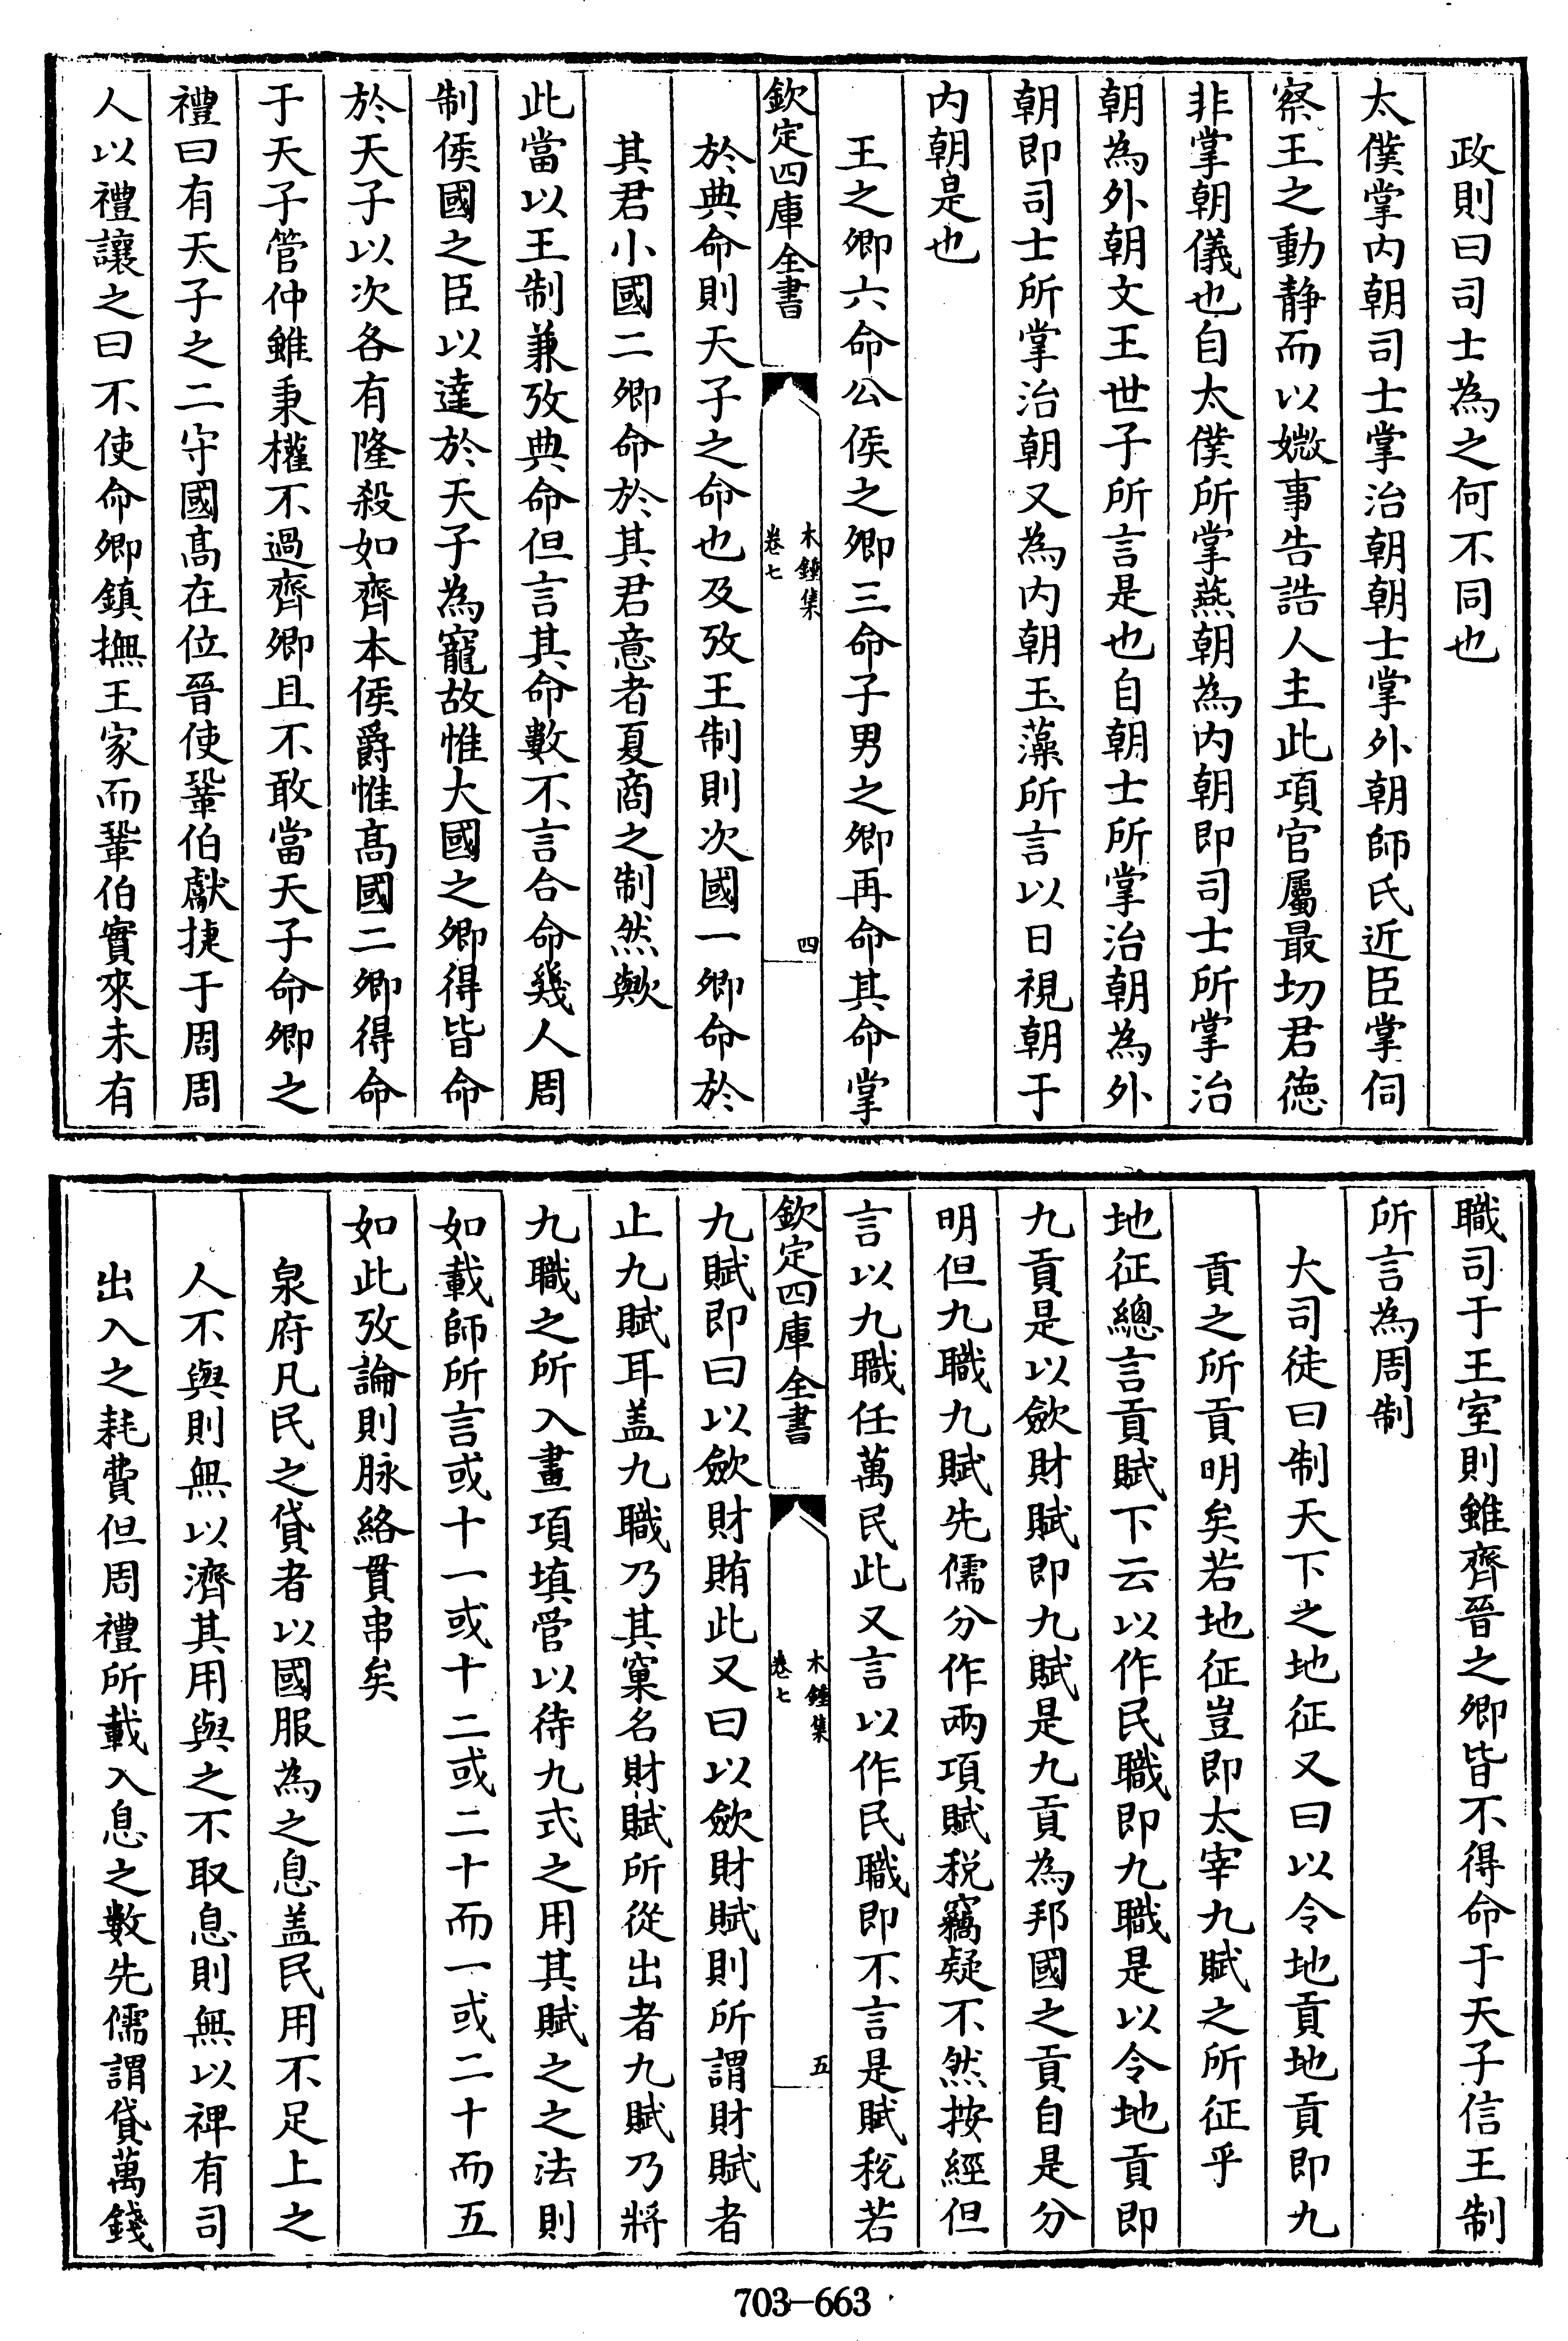 政則曰司士為之何不同也
太僕掌内朝司士掌治朝朝士掌外朝師氏近臣掌伺
察王之動静而以媺事告誥人主此項官屬最切君徳
非掌朝儀也自太僕所掌燕朝為内朝即司士所掌治
朝為外朝文王世子所言是也自朝士所掌治朝為外
朝即司士所掌治朝又為内朝玉藻所言以日視朝于
内朝是也
王之卿六命公侯之卿三命子男之卿再命其命掌
欽定四庫全書
木鍾集
卷七
四
於典命則天子之命也及攷王制則次國一卿命於
其君小國二卿命於其君意者夏商之制然歟
此當以王制兼攷典命但言其命數不言合命幾人周
制侯國之臣以達於天子為寵故惟大國之卿得皆命
於天子以次各有隆殺如齊本侯爵惟髙國二卿得命
于天子管仲雖秉權不過齊卿且不敢當天子命卿之
禮曰有天子之二守國髙在位晉使鞏伯獻捷于周周
人以禮讓之曰不使命卿鎮撫王家而鞏伯實來未有
職司于王室則雖齊晉之卿皆不得命于天子信王制
所言為周制
大司徒曰制天下之地征又曰以令地貢地貢即九
貢之所貢明矣若地征豈即太宰九賦之所征乎
地征總言貢賦下云以作民職即九職是以令地貢即
九貢是以斂財賦即九賦是九貢為邦國之貢自是分
明但九職九賦先儒分作兩項賦税竊疑不然按經但
言以九職任萬民此又言以作民職即不言是賦税若
欽定四庫全書
木鍾集
卷七
五
九賦即曰以斂財賄此又曰以斂財賦則所謂財賦者
止九賦耳盖九職乃其窠名財賦所從出者九賦乃將
九職之所入畫項填管以待九式之用其賦之之法則
如載師所言或十一或十二或二十而一或二十而五
如此攷論則脉絡貫串矣
泉府凡民之貸者以國服為之息盖民用不足上之
人不與則無以濟其用與之不取息則無以裨有司
出入之耗費但周禮所載入息之數先儒謂貸萬錢
703-663